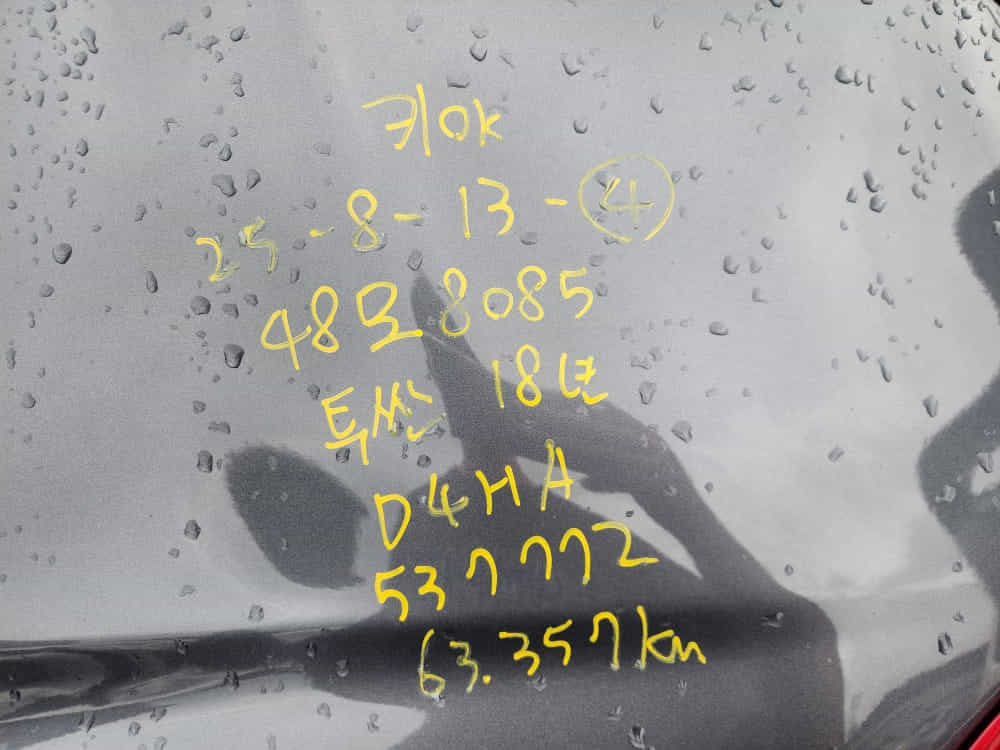 키ok
25-8-13-④
48모8085
투싼 18년
D4HA
537772
63.357km